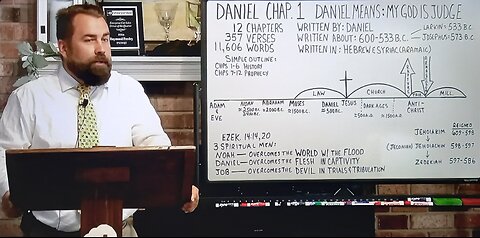 DANIEL CHAP. 1 DANIEL MEANS: MY GOD IS JUDGE
12 CHAPTERS
357 VERSES
11,606 WORDS
WRITTEN BY: DANIEL
WRITTEN ABOUT: 600-533 B.C.
WRITTEN IN: HEBREW & SYRIAC (ARAMAIC)
LARKIN: 533 B.C.
JOSEPHUS: 573 B.C.
SIMPLE OUTLINE:
CHPS 1-6 HISTORY
CHPS 7-12 PROPHECY
LAW
CHURCH
MILL
ADAM & EVE
NOAH
ABRAHAM
MOSES
DANIEL
JESUS
DARK AGES
ANTI-CHRIST
EZEK. 14:14,20
3 SPIRITUAL MEN:
NOAH — OVERCOMES THE WORLD W/ THE FLOOD
DANIEL — OVERCOMES THE FLESH IN CAPTIVITY
JOB — OVERCOMES THE DEVIL IN TRIALS & TRIBULATION
REIGNED
JEHOIAKIM 609-598
(JECONIAH) JEHOIACHIN 598-597
ZEDEKIAH 597-586